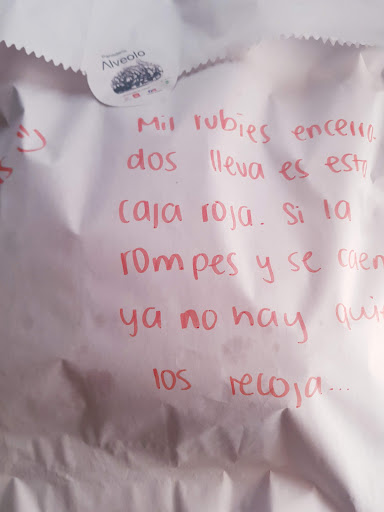 Panadería
Alveolo
Mil rubies encerra-
dos lleva es est
caja roja. Si la
rompes y se caen
ya no hay qui
los recoja...